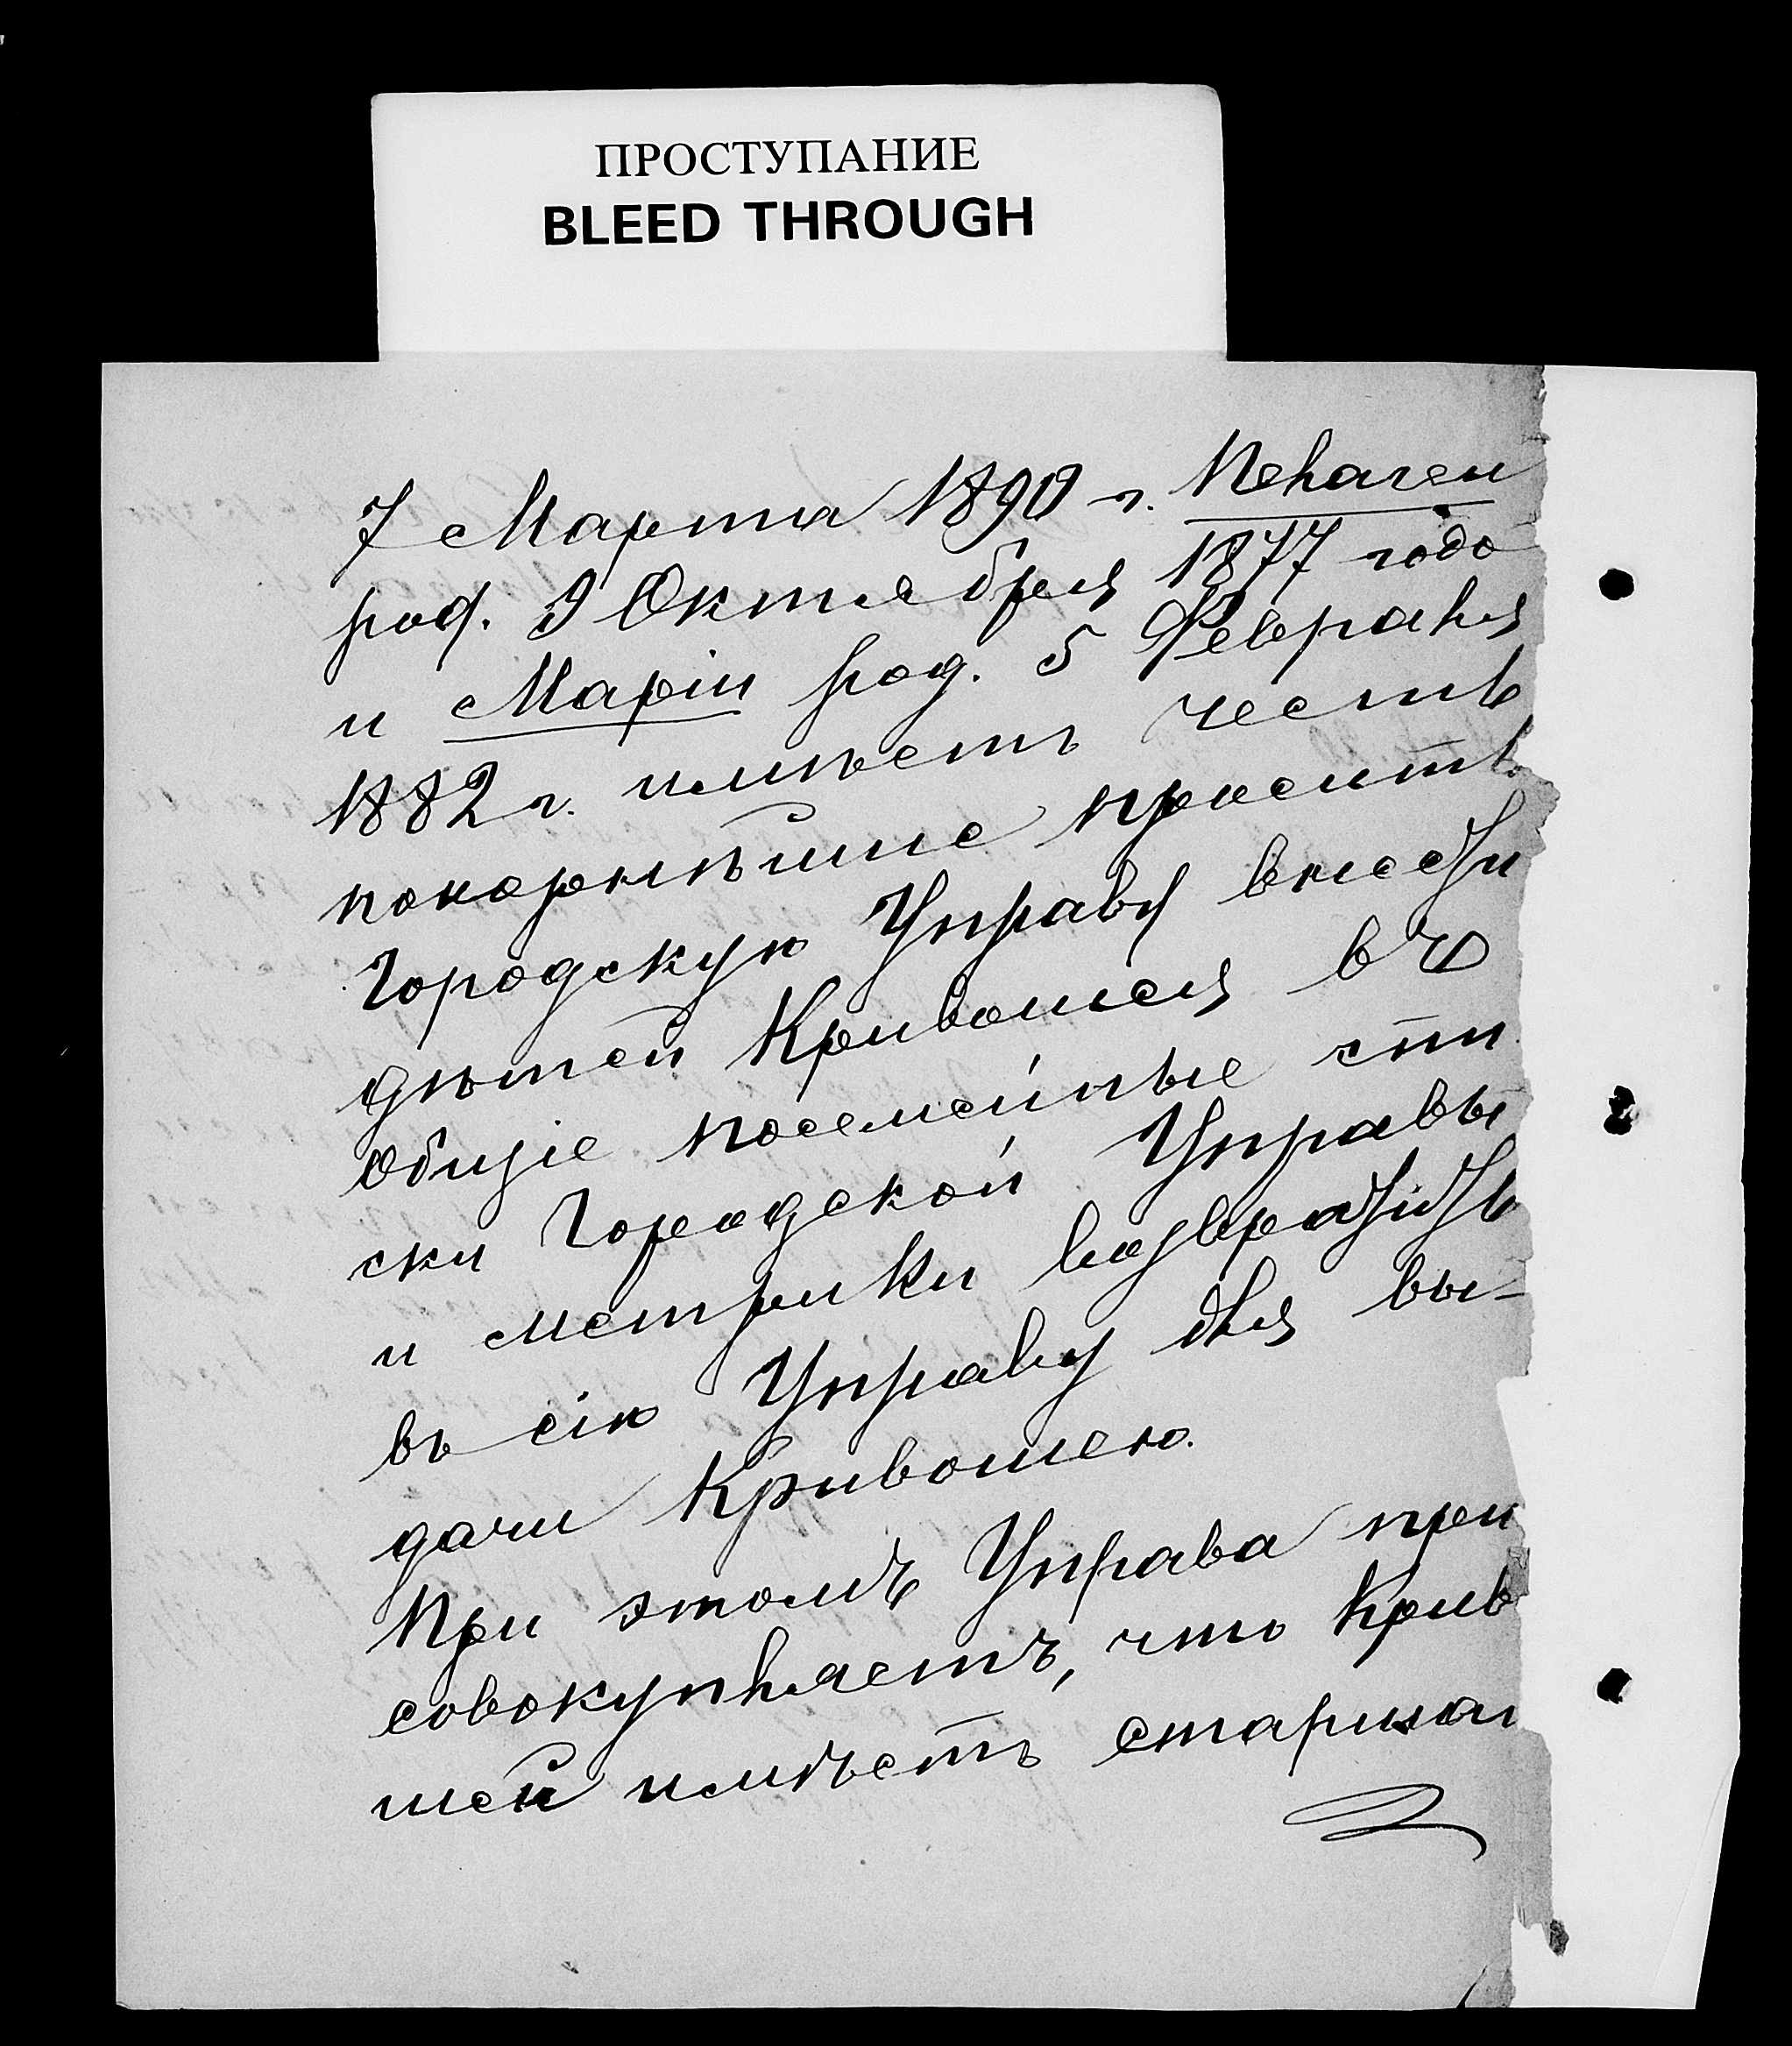 ПРОСТУПАНИЕ
BLEED THROUGH
7 Марта 1890 г. Пелагеи
род. 9 Октября 1877 года
и Маріи род. 5 Февраля
1882 г. имѣетъ честь
покорнѣйше просить
Городскую Управу внести
дѣтей Кривошея въ
общіе посемейные спи
ски Городской Управы
и метрики возвратить
въ сію Управу для вы-
дачи Кривошею.
При этомъ Управа при
совокупляетъ, что Криво
шей имѣетъ